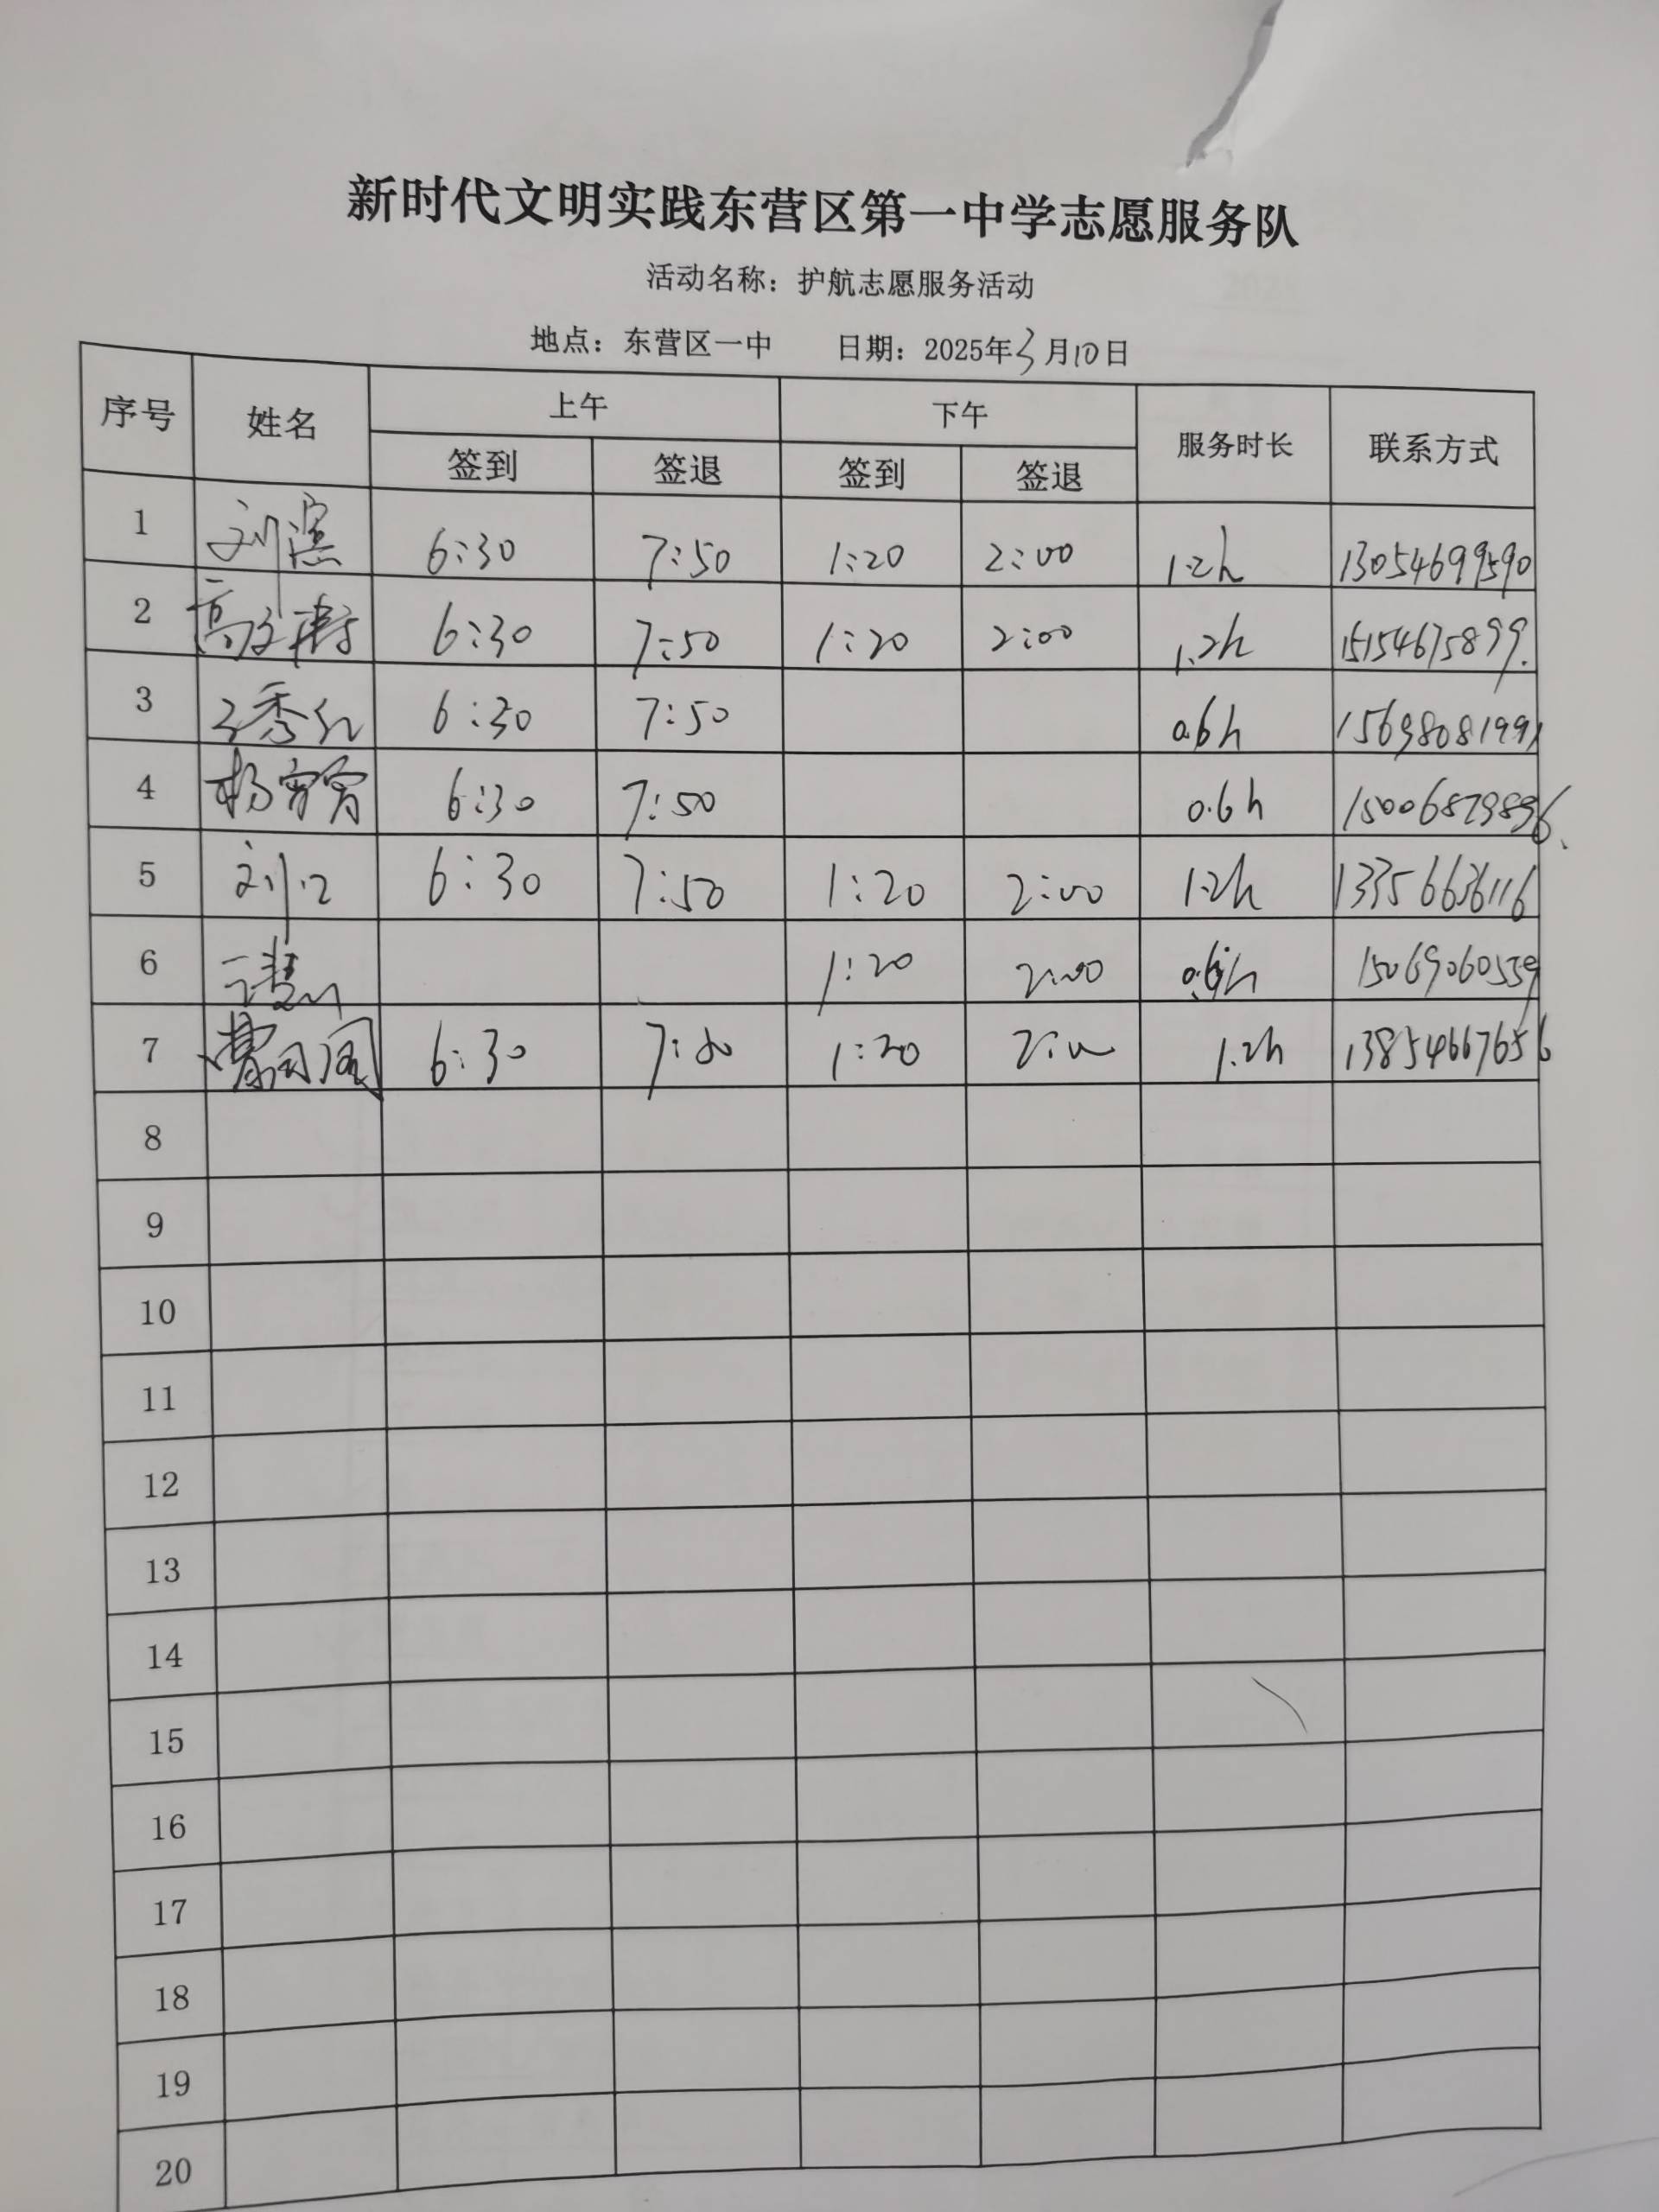 新时代文明实践东营区第一中学志愿服务队
活动名称：护航志愿服务活动
地点：东营区一中 日期：2025年3月10日
序号 姓名 上午 下午 服务时长 联系方式
签到 签退 签到 签退
1 刘滨 6:30 7:50 1:20 2:00 1.2h 13054699590
2 高文 6:30 7:50 1:20 2:00 1.2h 15154675899.
3 王秀红 6:30 7:50 0.6h 15698081991
4 杨宵宵 6:30 7:50 0.6h 15006879896
5 刘 6:30 7:50 1:20 2:00 1.2h 13356636116
6 1:20 2:00 0.6h 15069060559
7 6:30 7:50 1:20 2:00 1.2h 13854667656
8
9
10
11
12
13
14
15
16
17
18
19
20